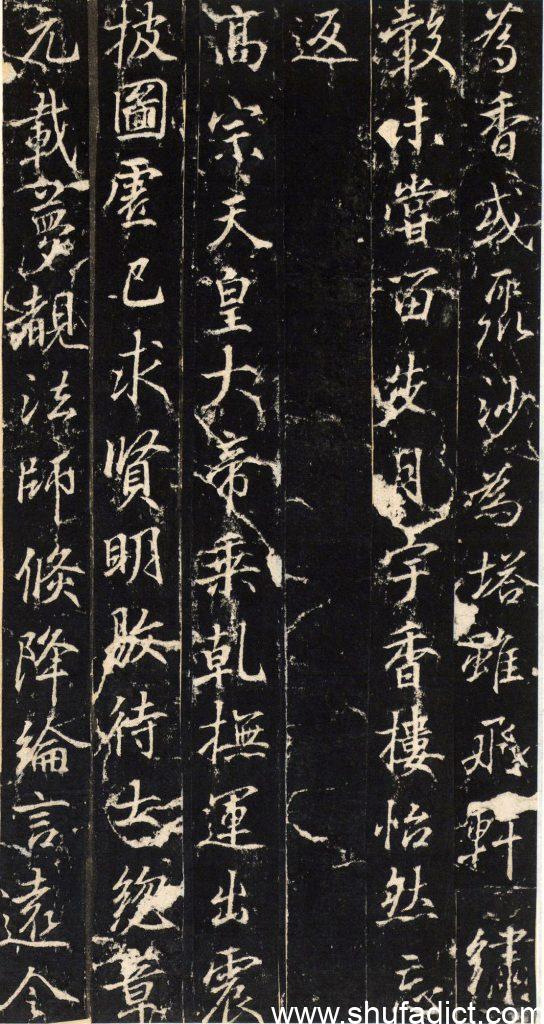 為香或聚沙為塔雖飛軒繡
轂未嘗留步月宇香樓怡然忘
返
高宗天皇大帝乘乾撫運出震
披圖虛己求賢明敭待士總章
元載夢覩法師倏降綸言遠令
www.shufadict.com